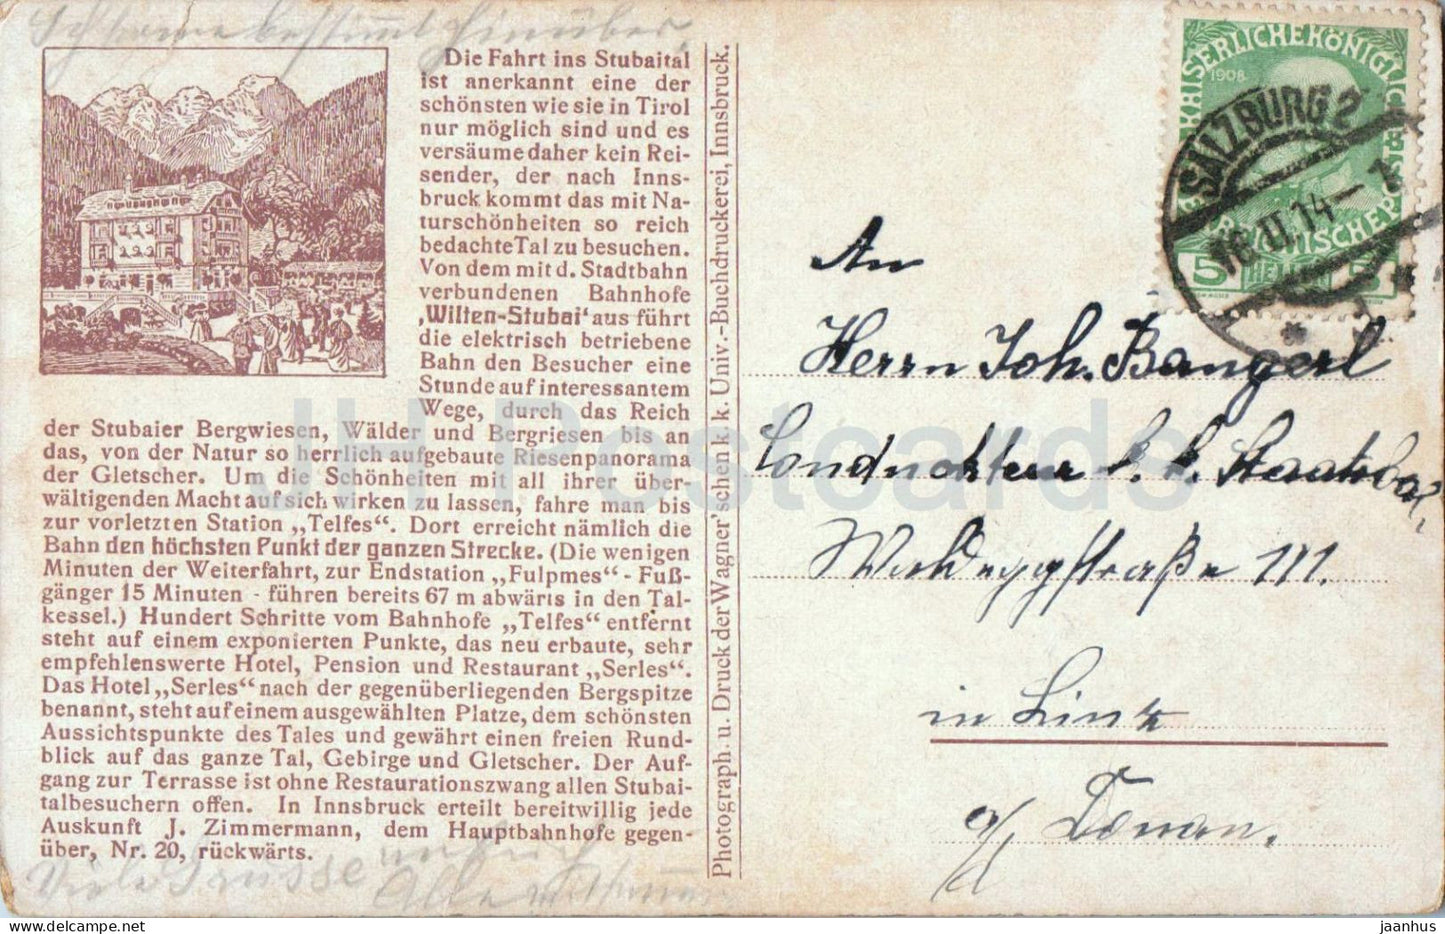 Die Fahrt ins Stubaital
ist anerkannt eine der
schönsten wie sie in Tirol
nur möglich sind und es
versäume daher kein Rei-
sender, der nach Inns-
bruck kommt das mit Na-
turschönheiten so reich
bedachte Tal zu besuchen.
Von dem mit d. Stadtbahn
verbundenen Bahnhofe
‚Wilten-Stubai‘ aus führt
die elektrisch betriebene
Bahn den Besucher eine
Stunde auf interessantem
Wege, durch das Reich
der Stubaier Bergwiesen, Wälder und Bergriesen bis an
das, von der Natur so herrlich aufgebaute Riesenpanorama
der Gletscher. Um die Schönheiten mit all ihrer über-
wältigenden Macht auf sich wirken zu lassen, fahre man bis
zur vorletzten Station „Telfes“. Dort erreicht nämlich die
Bahn den höchsten Punkt der ganzen Strecke. (Die wenigen
Minuten der Weiterfahrt, zur Endstation „Fulpmes“ - Fuß-
gänger 15 Minuten - führen bereits 67 m abwärts in den Tal-
kessel.) Hundert Schritte vom Bahnhofe „Telfes“ entfernt
steht auf einem exponierten Punkte, das neu erbaute, sehr
empfehlenswerte Hotel, Pension und Restaurant „Serles“.
Das Hotel „Serles“ nach der gegenüberliegenden Bergspitze
benannt, steht auf einem ausgewählten Platze, dem schönsten
Aussichtspunkte des Tales und gewährt einen freien Rund-
blick auf das ganze Tal, Gebirge und Gletscher. Der Auf-
gang zur Terrasse ist ohne Restaurationszwang allen Stubai-
talbesuchern offen. In Innsbruck erteilt bereitwillig jede
Auskunft J. Zimmermann, dem Hauptbahnhofe gegen-
über, Nr. 20, rückwärts.
Viele Grüsse
Photograph. u. Druck der Wagner'schen k. k. Univ.-Buchdruckerei, Innsbruck.
KAISERLICHEKÖNIGLICHE
1908
5 HELLER 5
SALZBURG 2
16.II.14
An
Herrn Joh. Bangerl
Conducteur k. k. Staatsbah
Waldeggstraße 111.
in Linz
a/ Donau.
JH Postcards
jaanhus @ delcampe.net